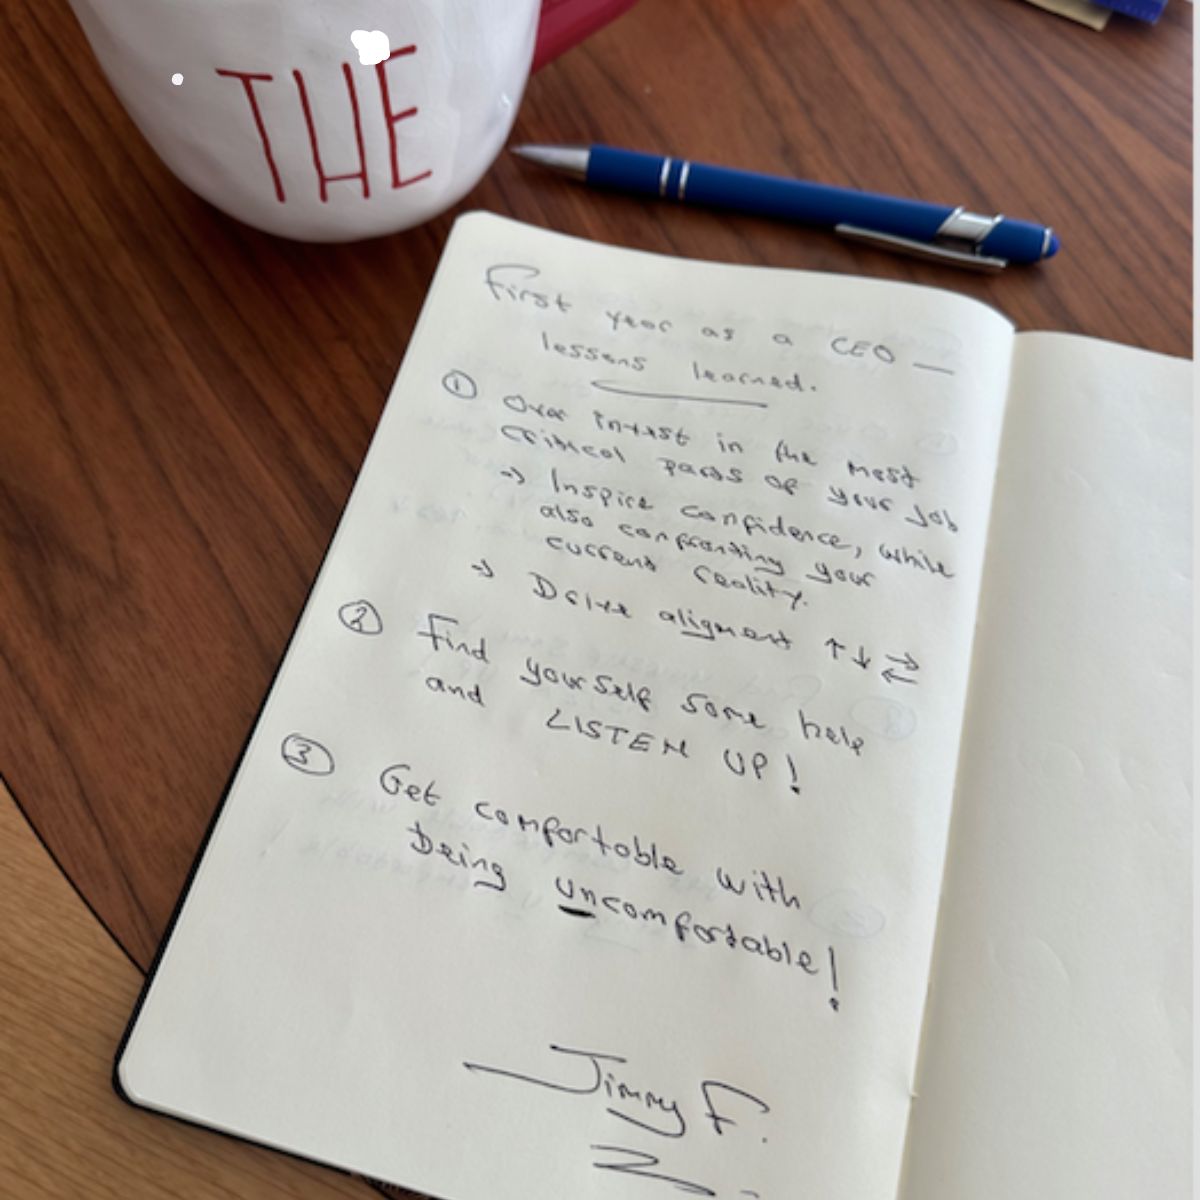 THE
First year as a CEO —
lessons learned.
① Over invest in the most
critical parts of your job
→ Inspire confidence, while
also confronting your
current reality.
→ Drive alignment ↑↓⇄
② Find yourself some help
and LISTEN UP!
③ Get comfortable with
being uncomfortable!
Jimmy F.